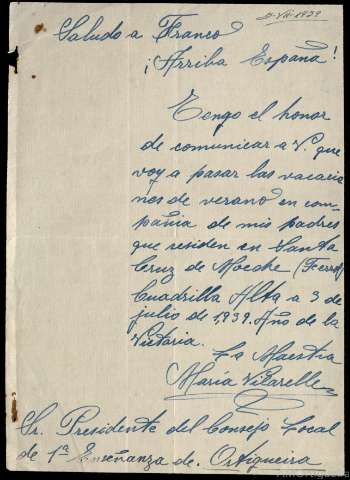 5-VII-1939
Saludo a Franco
¡Arriba España!
Tengo el honor
de comunicar a V. que
voy a pasar las vacacio
nes de verano en com-
pañia de mis padres
que residen en Santa
Cruz de Moeche (Ferrol)
Cuadrilla Alta a 3 de
julio de 1,939. Año de la
Victoria.
La Maestra
María Vilarelle
Sr. Presidente del Consejo Local
de 1ª Enseñanza de Ortigueira